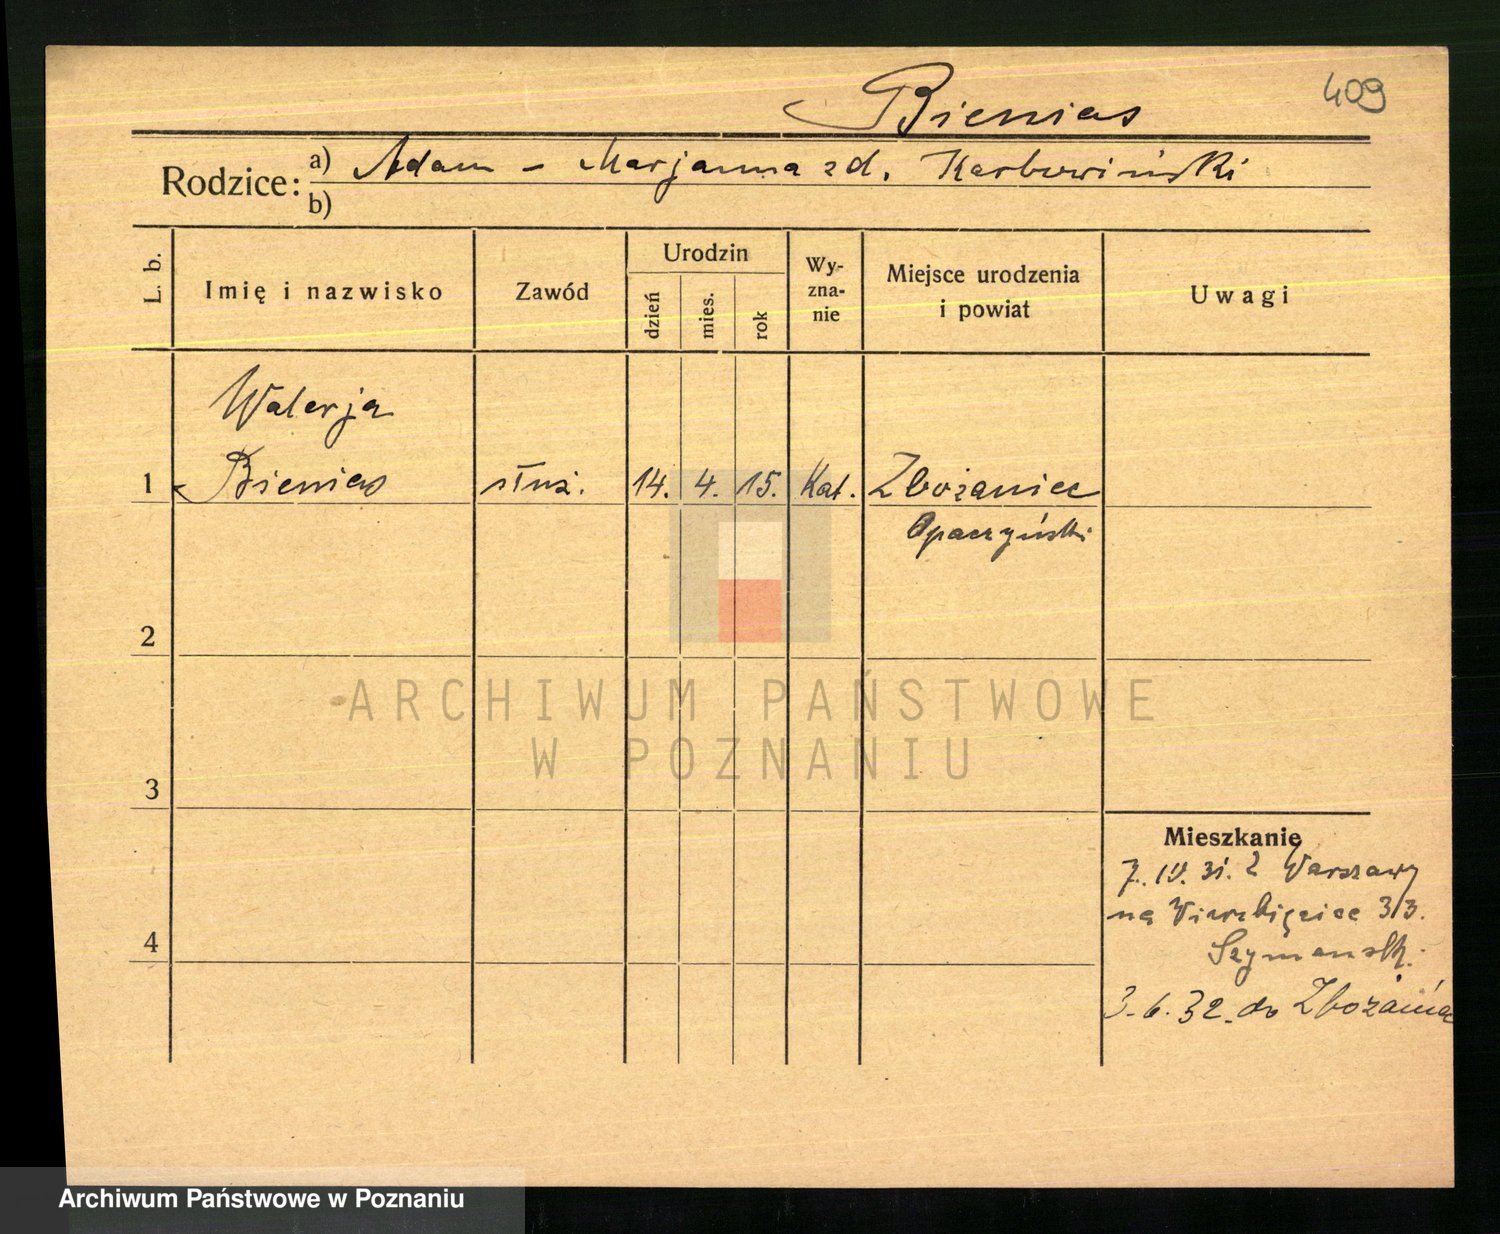 409
Bienias
Rodzice: a) Adam – Marjanna z d. Karbowiński
b)
L. b.
Imię i nazwisko
Zawód
Urodzin
dzień
mies.
rok
Wy-
zna-
nie
Miejsce urodzenia
i powiat
Uwagi
Walerja
1 Bienias służ. 14. 4. 15. Kat. Zbożaniec
Opaczyński
2
3
4
ARCHIWUM PAŃSTWOWE
W POZNANIU
Mieszkanie
7. IV. 31. z Warszawy
na 33.
3.6.32. do
Archiwum Państwowe w Poznaniu